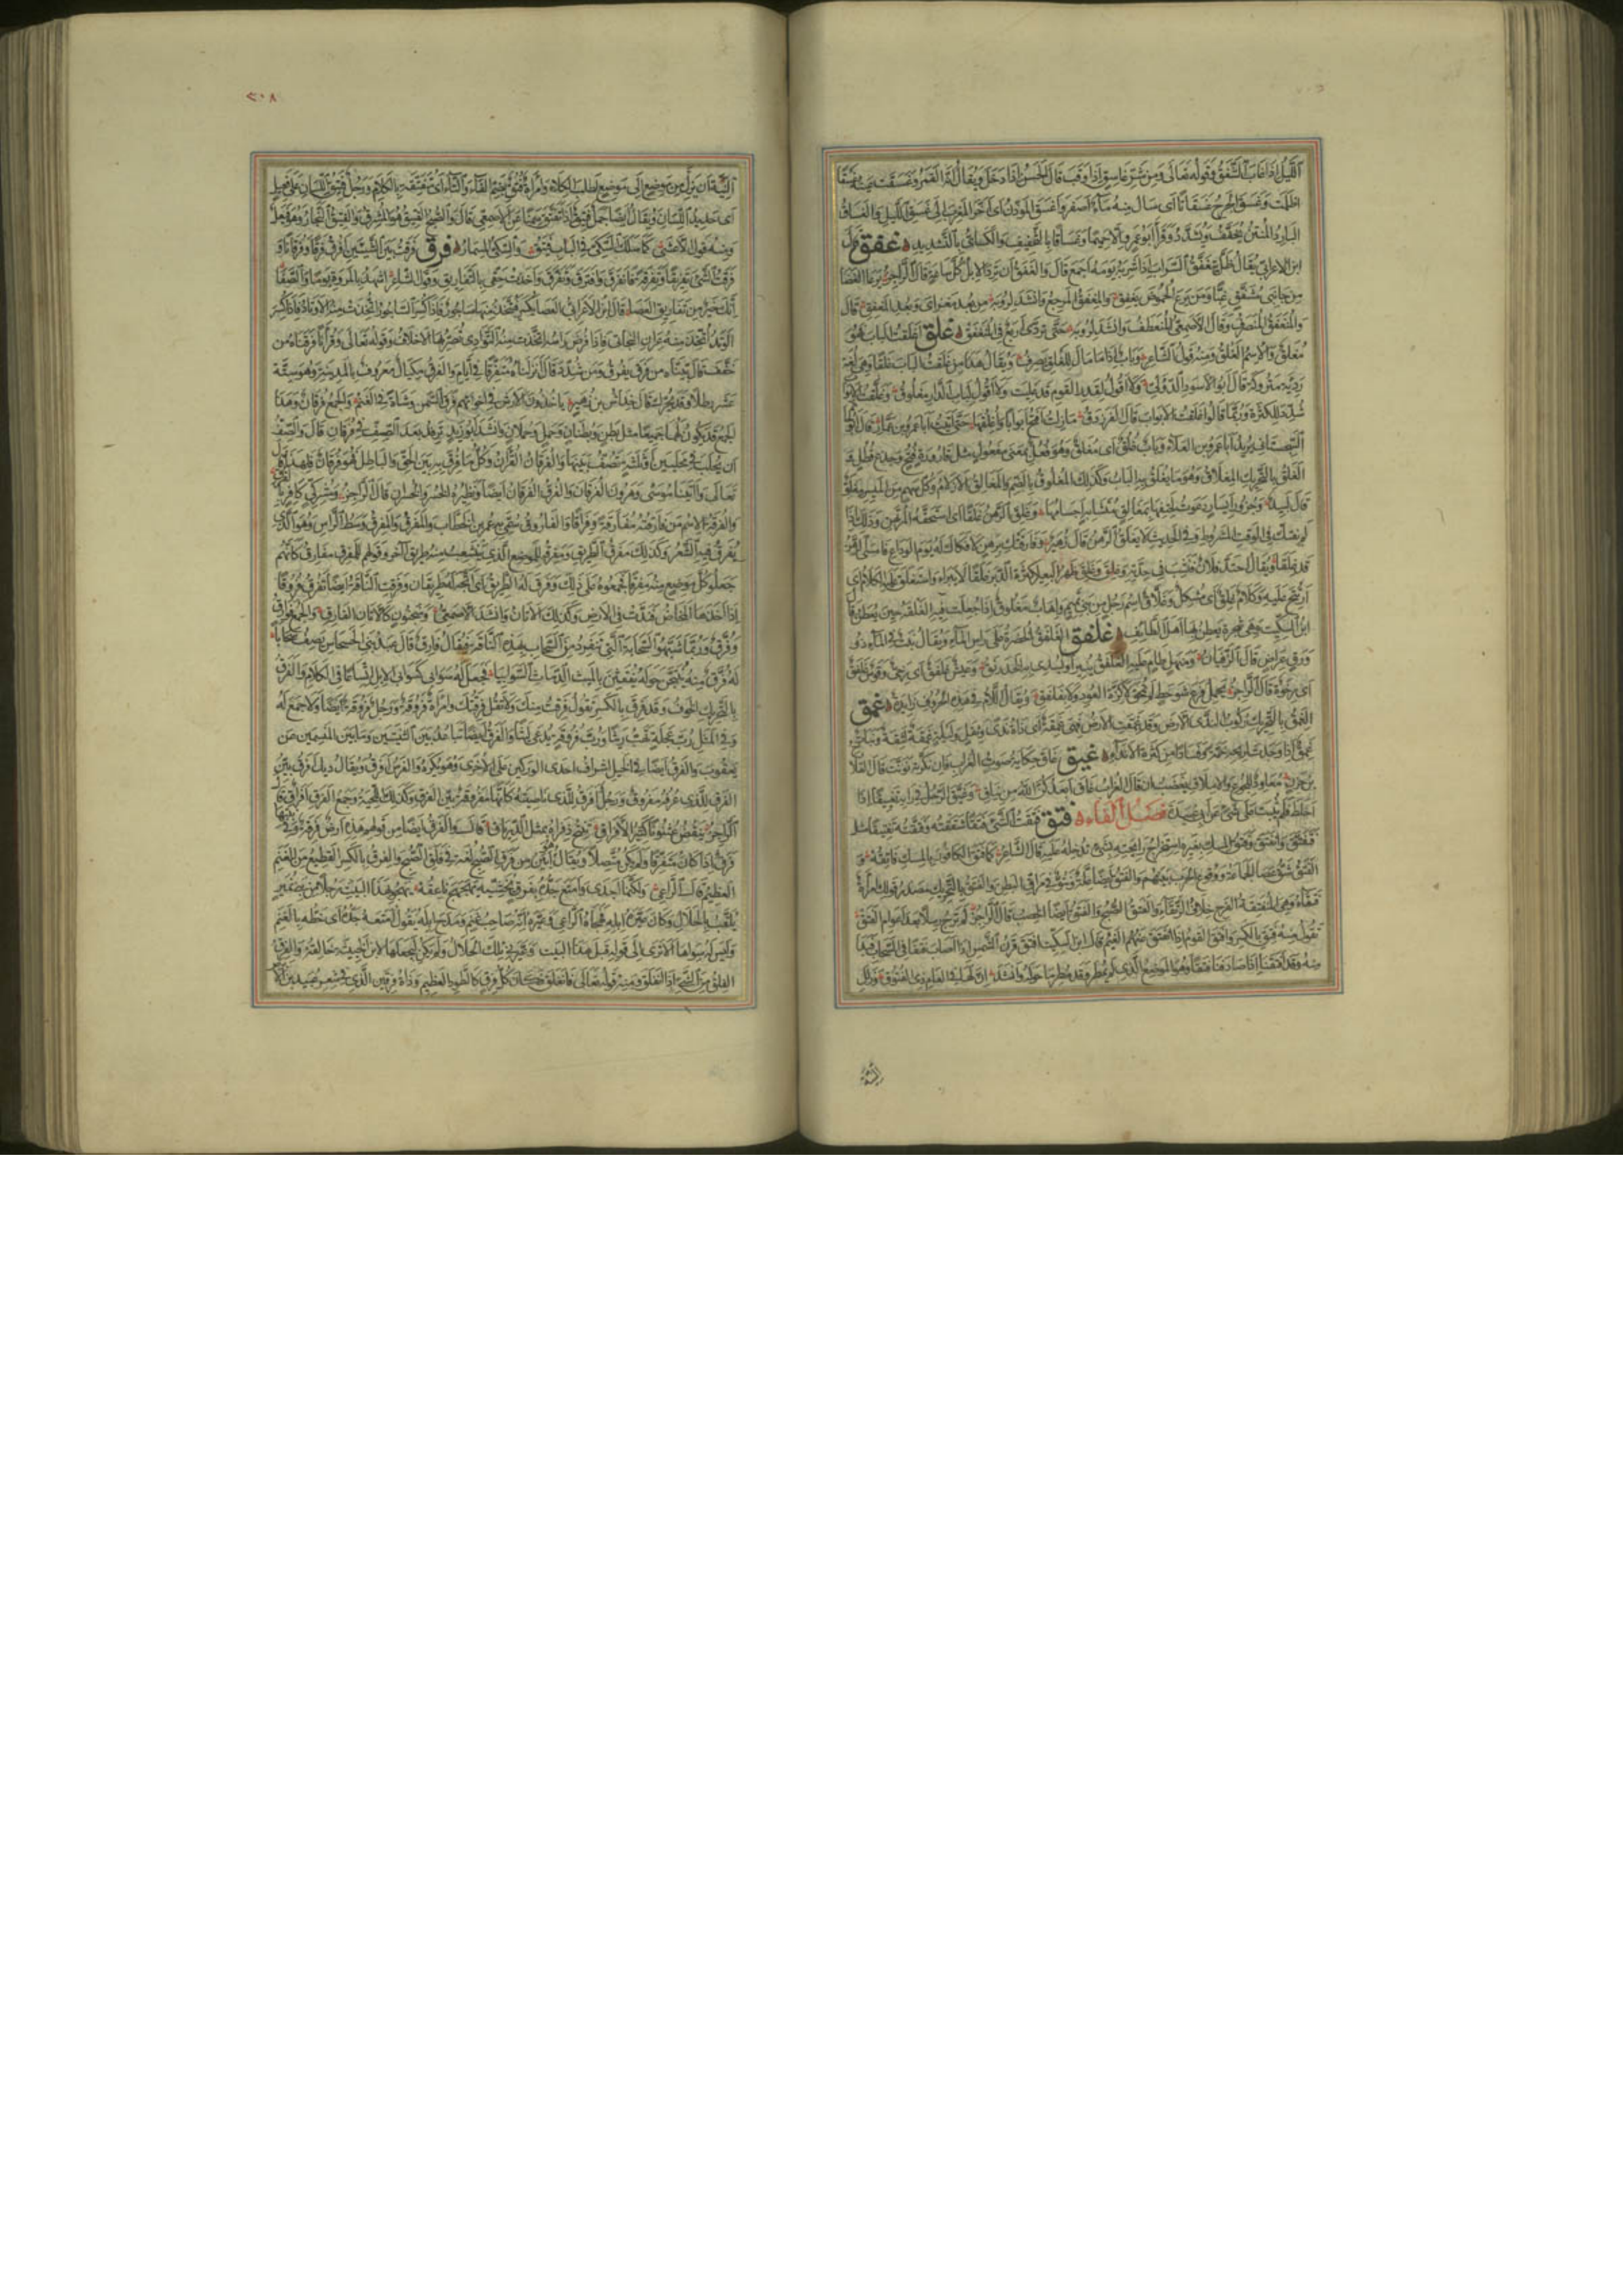 اللَّيل اذا غاب الشفق وقوله تعالى ومن شر غاسق اذا وقب قال الحسن اذا دخل ويقال انه القمر وغسقت عينه غسقًا
اظلمت وغسق الجرح غسقانًا اى سال منه ماء اصفر واغسق المؤذن اى اخر المغرب الى غسق الليل والغساق
البارد المنتن يخفف ويشدد وقرأ ابو عمرو الا حميمًا وغساقًا بالتخفيف والكسائى بالتشديد غفق
ابن الاعرابى يقال ظل يتغفق الشراب اذا شربه يومه اجمع قال والغفق ان ترد الابل كل ساعة قال الراجز يرعى الغضا
من جانبى مشفق غبا ومن يرع الحموض يغفق والمنغفق المرجع وانشد لرؤبة من بعد مغزاى وبعد المنغفق قال
والمنغفق المنصرف وقال الاصمعى المنعطف وانشد لرؤبة حتى تردى اربع فى المنغفق غلق اغلقت الباب فهو
مغلق والاسم الغلق ومنه قول الشاعر وباب اذا ما مال للغلق يصرف ويقال هذا من غلقت الباب غلقا وهى لغة
ردية متروكة قال ابو الاسود الدؤلى ولا اقول لقدر القوم قد غليت ولا اقول لباب الدار مغلوق وغلقت الابواب
شدد للكثرة وربما قالوا اغلقت الابواب قال الفرزدق ما زلت افتح ابوابا واغلقها حتى اتيت ابا عمرو بن عمار قال ابو حاتم
السجستانى يريد ابا عمرو بن العلاء وباب غلق اى مغلق وهو فعل بمعنى مفعول مثل قارورة فتح وجذع قطل
الغلق بالتحريك المغلاق وهو ما يغلق به الباب وكذلك المغلوق بالضم والمغالق الازلام وكل سهم من الميسر مغلق
قال لبيد وجزور ايسار دعوت لحتفها بمغالق متشابه اجسامها وغلق الرهن غلقا اى استحقه المرتهن وذلك اذا
لم يفتكك فى الوقت المشروط وفى الحديث لا يغلق الرهن قال زهير وفارقتك برهن لا فكاك له يوم الوداع فامسى الرهن
قد غلقا ويقال احتد فلان فغلق فى حدته وغلق ظهر البعير كثرة الدبر غلقا لا يبرأ واستغلق عليه الكلام اى
ارتج عليه وكلام غلق اى مشكل وغلاق اسم رجل من بنى تميم واهاب مغلوق اذا جعلت فيه الغلقة حين يعطن قال
ابن السكيت وهى شجرة يعطن بها اهل الطايف غلفق الغلفق الخضرة على راس الماء ويقال نبت فى الماء ذو
ورق عراض قال الزفيان ومنهل طام عليه الغلفق ينير او يسدى به الخدرنق وعيش غلفق اى رخى وقوس غلفق
اى رخوة قال الراجز تحمل فرع شوحط لم تمحق لا كزة العود ولا بغلفق ويقال اللام فى هذه الحروف زايدة غمق
الغمق بالتحريك ركوب الندى الارض وقد غمقت الارض فهى غمقة اى ذات ندى وثقل وليلة غمقة لثقة ونبات
غمق اذا وجدت لريحه خمة وفسادا من كثرة الانداء غيق غاق حكاية صوت الغراب فان نكرته نونت قال القلاخ
بن حزن معاود للجوع والاملاق يغضب ان قال الغراب غاق ابعدكن الله من نياق وغيق الرجل فى رايه تغييقا اذا
اختلط فلم يثبت على شئ عن ابى عبيدة فصل الفاء فتق فتقت الشئ فتقا شققته وفتقته تفتيقا مثله
فتفتق وانفتق وفتق المسك بغيره استخراج رايحته بشئ تدخله عليه قال الشاعر كما فتق الكافور بالمسك فاتقه و
الفتق شق عصا الجماعة ووقوع الحرب بينهم والفتق ايضا علة ونتو فى مراق البطن والفتق بالتحريك مصدر قولك امراة
فتقاء وهى المنفتقة الفرج خلاف الرتقاء والفتق الصبح والفتق ايضا الخصب قال الراجز لم ترج رسلا بعد اعوام الفتق
تقول منه فتق بالكسر وافتق القوم اذا انفتق عنهم الغيم قال ابن السكيت افتق قرن الشمس اذا اصاب فتقا فى السحاب فبدا
منه وقد افتقنا اذا صادفنا فتقا وهو الموضع الذى لم يمطر وقد مطر ما حوله وانشد ان لها فى العام ذى الفتوق وزلل
النية
٢٠٨
النية ان ينزل من موضع الى موضع لطلب الكلاء وامراة فتق بضم الفاء والتاء اى متفتقة بالكلام ورجل فتيق اللسان على فعيل
اى حديد اللسان ويقال ايضا جمل فتيق اذا تفتق سمنا عن الاصمعى قال والصبح الفتيق هو المشرق والفيتق النجار وهو فيعل
ومنه قول الاعشى كما سلك السكى فى الباب فيتق والسكى المسمار فرق فرقت بين الشيئين افرق فرقا وفرقانا و
فرقت الشئ تفريقا وتفرقة فانفرق وافترق وتفرق واخذت حقى بالتفاريق وقول الشاعر اشهد بالمروة يوما والصفا
انك خير من تفاريق العصا قال ابن الاعرابى العصا تكسر فيتخذ منها ساجور فاذا كسر الساجور اتخذت منه الاوتاد فاذا كسر
الوتد اتخذ منه عران البخاتى فاذا فرض راسه اتخذت منه التوادى تصر بها الاخلاف وقوله تعالى وقرآنا فرقناه من
خفف قال بيناه من فرق يفرق ومن شدد قال انزلناه متفرقا فى ايام والفرق مكيال معروف بالمدينة وهو ستة
عشر رطلا وقد يحرك قال خداش بن زهير ياخذون الارش فى اخوتهم فرق السمن وشاة فى الغنم والجمع فرقان وهذا
الجمع قد يكون لهما جميعا مثل بطن وبطنان وحمل وحملان وانشد ابو زيد ترفد بعد الصف فى فرقان قال والصف
ان تحلب فى محلبين او ثلثة تصف بينها والفرقان القرآن وكل ما فرق به بين الحق والباطل فهو فرقان فلهذا قال
تعالى ولقد آتينا موسى وهرون الفرقان والفرق الفرقان ايضا ونظيره الخسر والخسران قال الراجز ومشركى كافر بالفرق
والفرقة الاسم من فارقته مفارقة وفراقا والفاروق سمى به عمر بن الخطاب والمفرق والمفرق وسط الراس وهو الذى
يفرق فيه الشعر وكذلك مفرق الطريق ومفرقه للموضع الذى يتشعب منه طريق آخر وقولهم للمفرق مفارق كانهم
جعلوا كل موضع منه مفرقا فجمعوه على ذلك وفرق له الطريق اى اتجه له طريقان وفرقت الناقة ايضا تفرق فروقا
اذا اخذها المخاض فندت فى الارض وكذلك الاتان وانشد الاصمعى ومنجنون كالاتان الفارق والجمع فوارق
وفرق وربما شبهوا السحابة التى تنفرد من السحاب بهذه الناقة فيقال فارق قال عبد بنى الحسحاس يصف سحابا
له فرق منه ينتجن حوله يفقئن بالميث الدماث السوابيا فجعل له سوابى كسوابى الابل اتساعا فى الكلام والفرق
بالتحريك الخوف وقد فرق بالكسر تقول فرقت منك ولا تقل فرقتك وامراة فروقة ورجل فروقة ايضا ولا جمع له
وفى المثل رب عجلة تهب ريثا ورب فروقة يدعى ليثا والفرق ايضا تباعد بين الثنيتين وما بين المنسمين عن
يعقوب والفرق ايضا فى الخيل اشراف احدى الوركين على الاخرى وهو يكره والفرس افرق ويقال ديك افرق بين
الفرق للذى عرفه مفروق ورجل افرق للذى ناصيته كانها مفروقة بين الفرق وكذلك اللحية وجمع الفرق افراق قال
الراجز ينفض عثنونا كثير الافراق تنتح ذفراه بمثل الدرياق قال والفرق ايضا من قولهم هذه ارض فرقة وفى نبتها
فرق اذا كان متفرقا ولم يكن متصلا ويقال ابين من فرق الصبح لغة فى فلق الصبح والفرق بالكسر القطيع من الغنم
العظيم قال الراعى ولكنما اجدى وامتع جده بفرق يخشيه بهجهج ناعقه يهجو بهذا البيت رجلا من بنى نمير
يلقب بالحلال وكان عيره ابله فهجاه الراعى فعيره انه صاحب غنم ومدح ابله يقول امتعه جده اى حظه بالغنم
وليس له سواها الا ترى الى قوله قبل هذا البيت وعيرنى تلك الحلال ولم يكن ليجعلها لابن الخبيثة خالقه والفرق
الفلق من الشئ اذا انفلق ومنه قوله تعالى فانفلق فكان كل فرق كالطود العظيم وذات فرقين الذى فى شعر عبيد بن الابرص